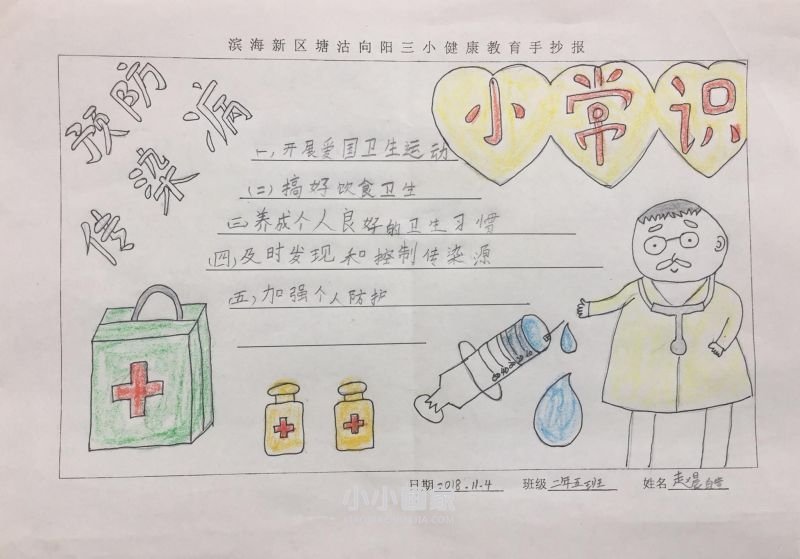 滨海新区塘沽向阳三小健康教育手抄报
预防
传染病
小常识
一,开展爱国卫生运动
(二)搞好饮食卫生
三,养成个人良好的卫生习惯
(四)及时发现和控制传染源
(五)加强个人防护
日期 2018.11.4 班级 二年五班 姓名 赵
小小画家